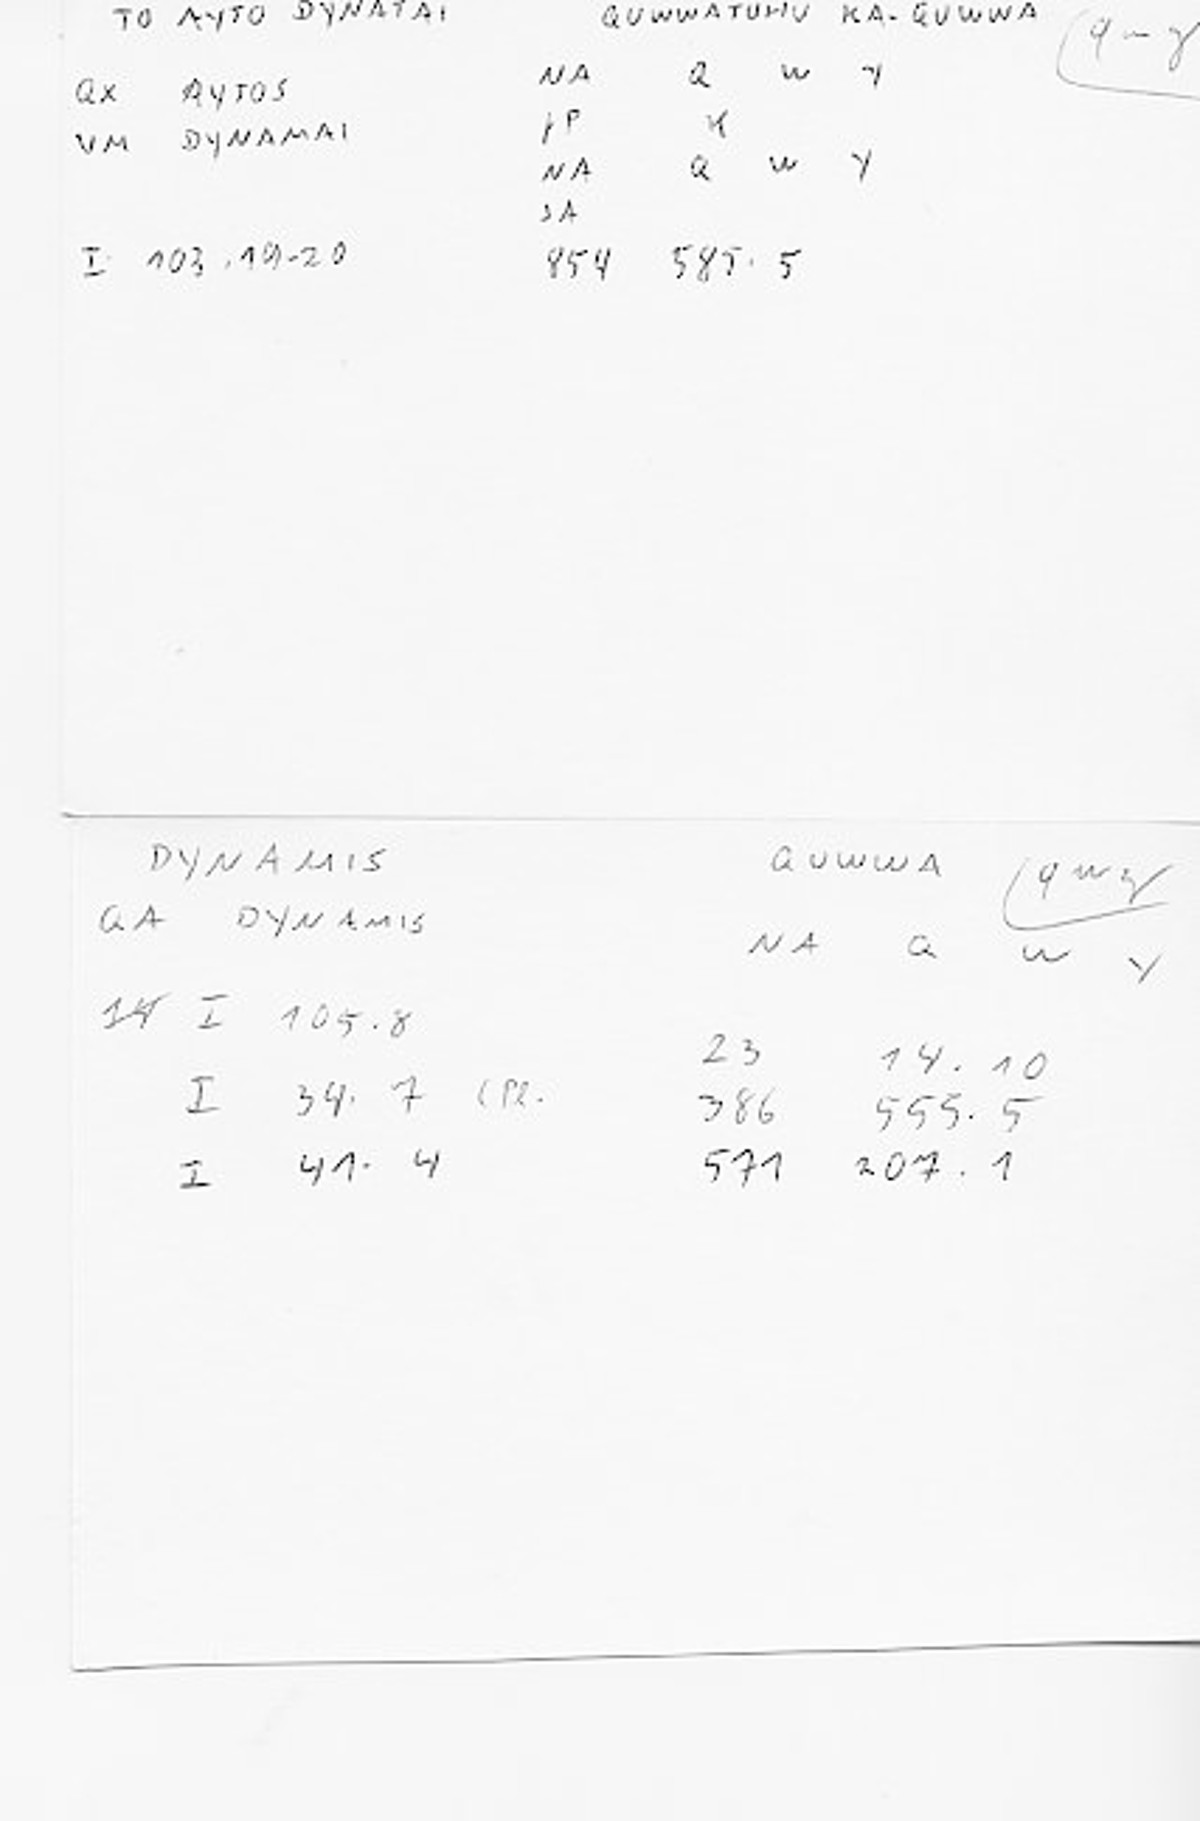 TO AYTO DYNATAI QUWWATUHU KA-QUWWA
QX AYTOS NA Q W Y
VM DYNAMAI PP K
NA Q W Y
SA
I 103.19-20 854 585.5
DYNAMIS QUWWA qwy
QA DYNAMIS NA Q W Y
14 I 105.8 23 14.10
I 34.7 (Pl. 386 555.5
I 41.4 571 207.1